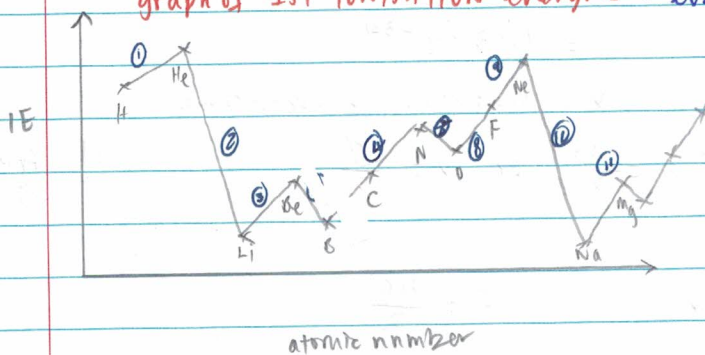 graph of 1st ionization energ
①
He
H
IE
②
③
Be
Li
B
④
C
N
O
⑧
F
⑨
Ne
⑩
Na
⑪
Mg
atomic number